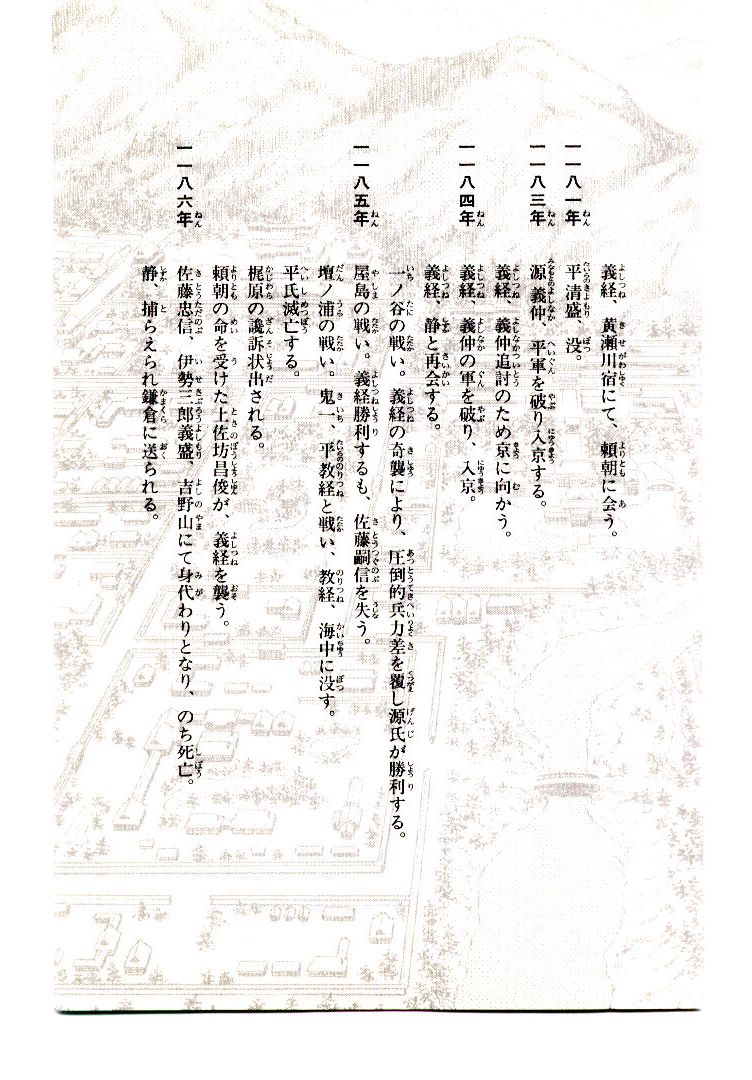 義経、黄瀬川宿にて、頼朝に会う。
一一八一年　平清盛、没。
一一八三年　源義仲、平軍を破り入京する。
義経、義仲追討のため京に向かう。
一一八四年　義経、義仲の軍を破り、入京。
義経、静と再会する。
一ノ谷の戦い。義経の奇襲により、圧倒的兵力差を覆し源氏が勝利する。
一一八五年　屋島の戦い。義経勝利するも、佐藤嗣信を失う。
壇ノ浦の戦い。鬼一、平教経と戦い、教経、海中に没す。
平氏滅亡する。
梶原の讒訴状出される。
頼朝の命を受けた土佐坊昌俊が、義経を襲う。
一一八六年　佐藤忠信、伊勢三郎義盛、吉野山にて身代わりとなり、のち死亡。
静、捕らえられ鎌倉に送られる。